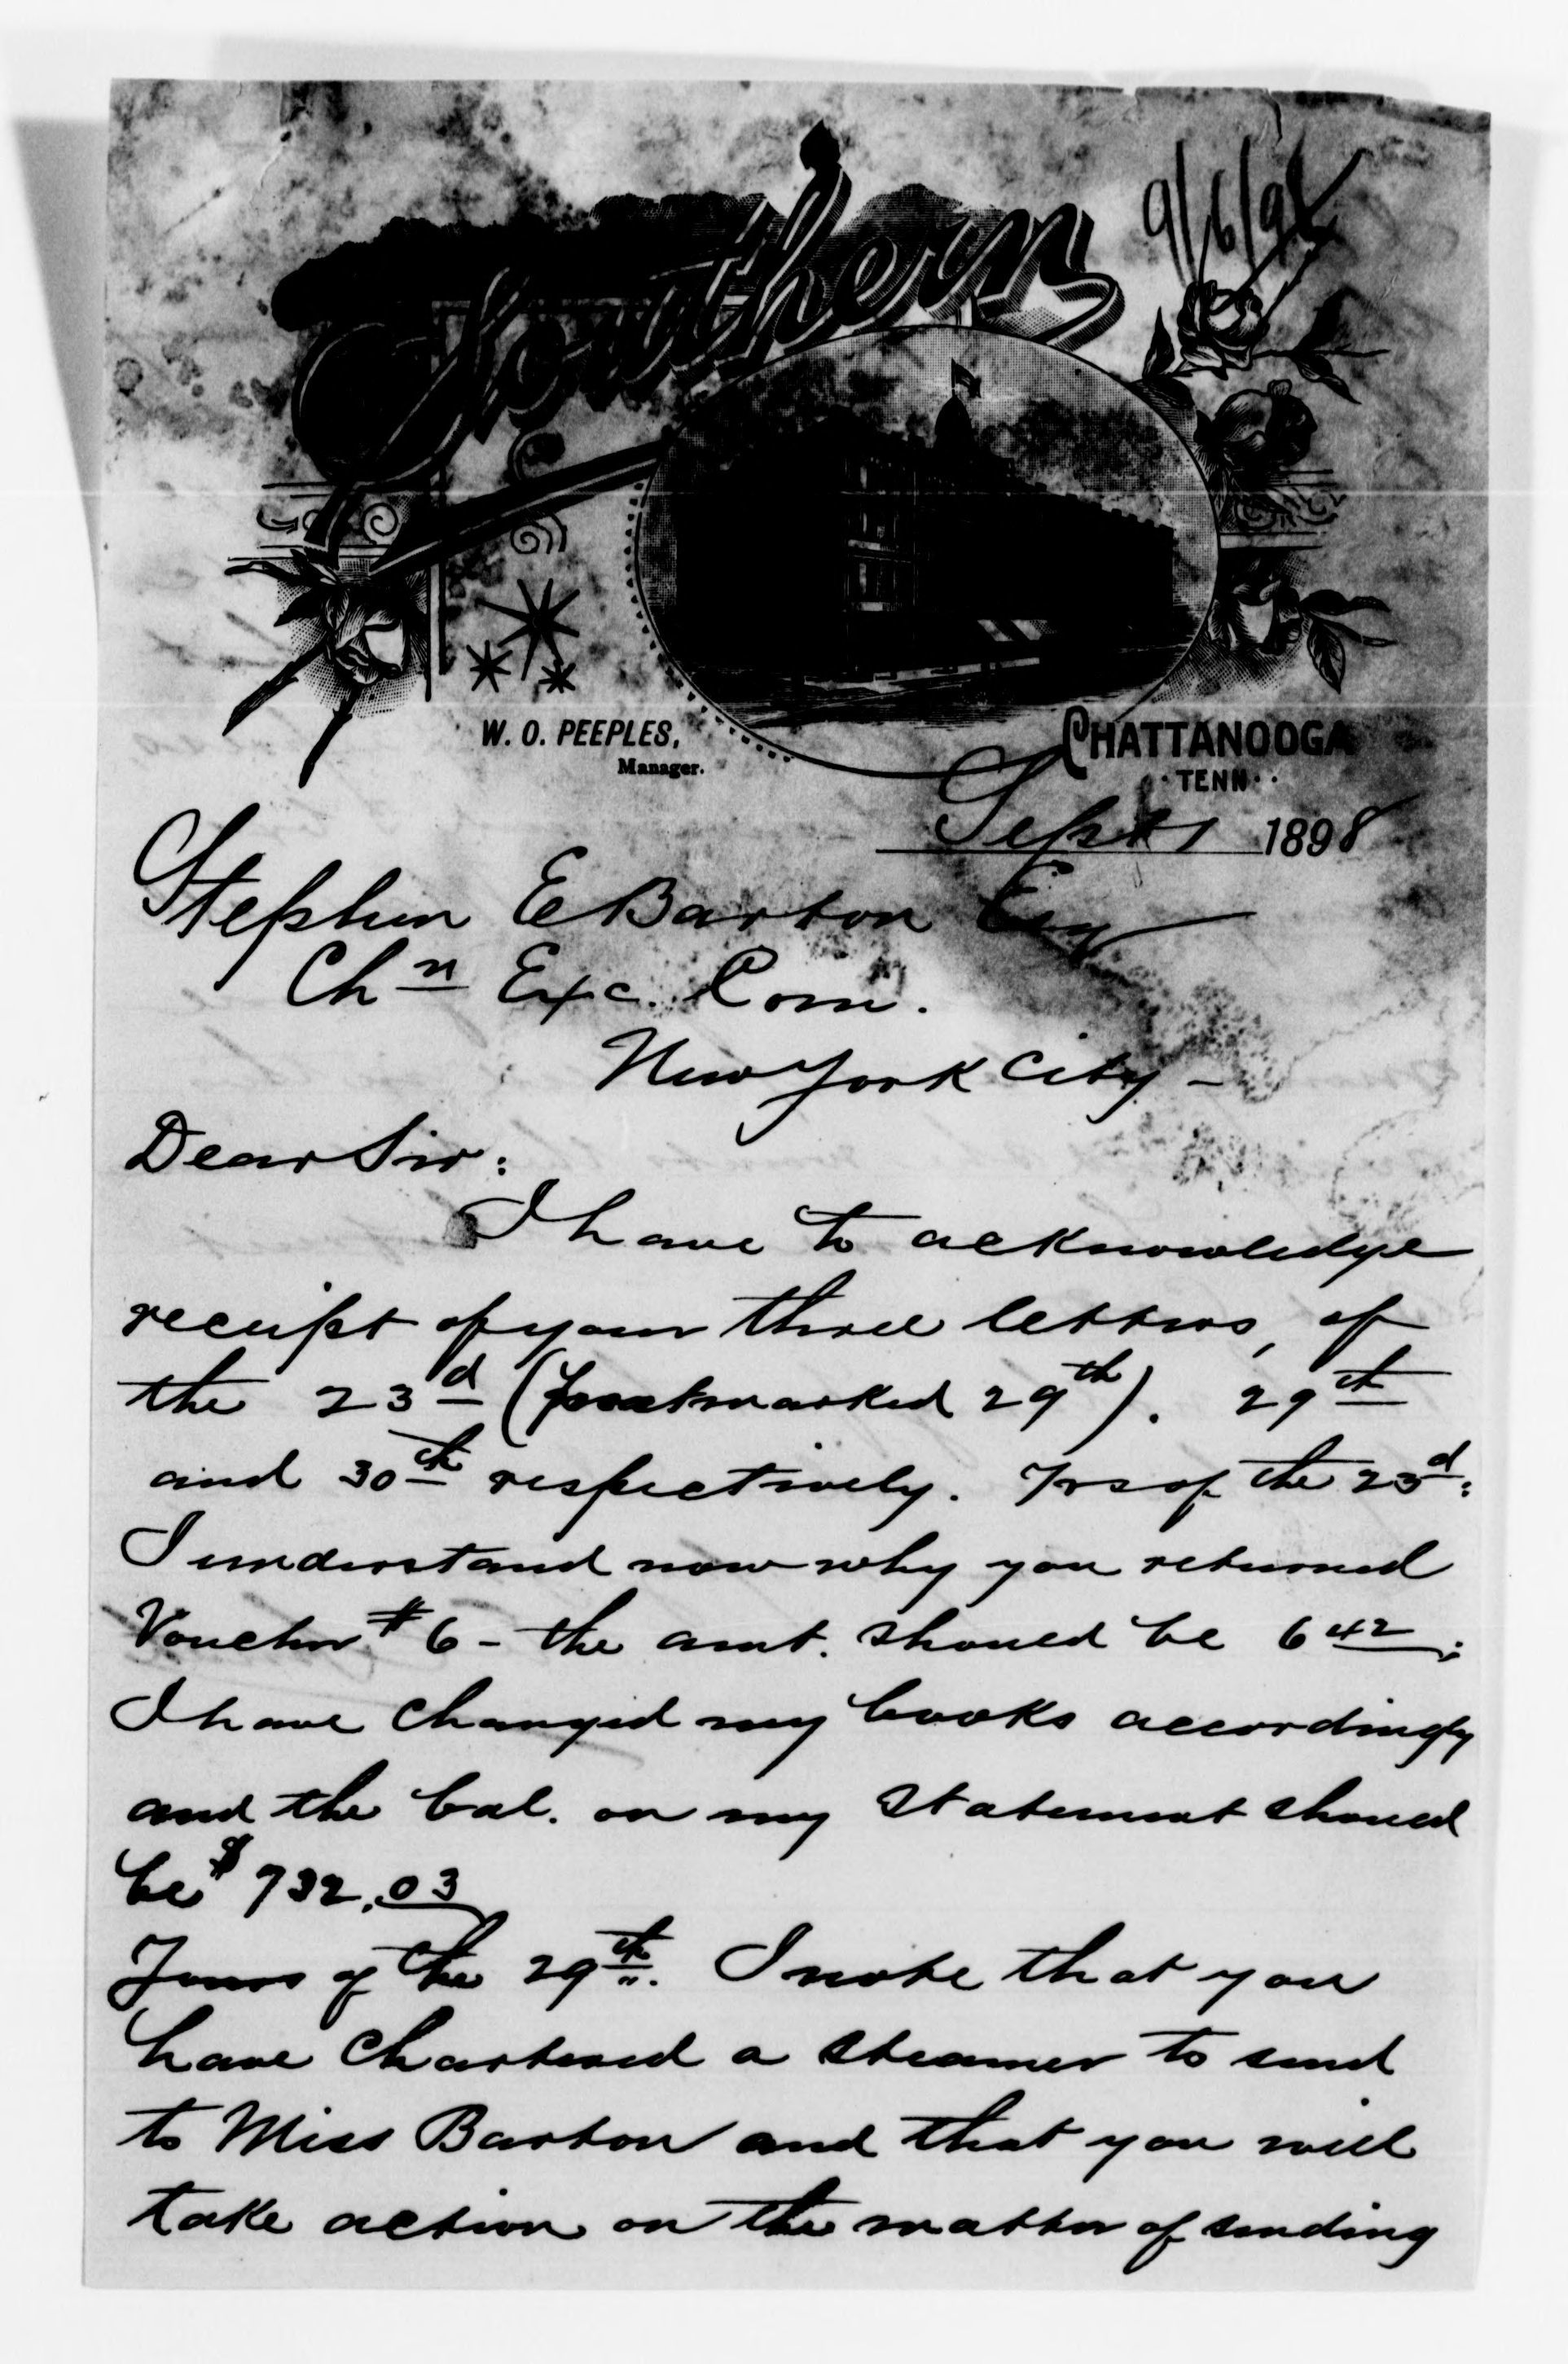 9/6/98
Southern
W. O. PEEPLES,
Manager.
CHATTANOOGA
TENN.
Sept 1 1898
Stephen E Barton Esq
Chn Exc. Com.
New York City -
Dear Sir:
I have to acknowledge
receipt of your three letters, of
the 23d (postmarked 29th). 29th
and 30th respectively. Yrs of the 23d:
I understand now why you returned
Voucher #6 - the amt. should be 6 42;
I have changed my books accordingly
and the bal. on my statement should
be $732.03
Yours of the 29th. I note that you
have chartered a steamer to send
to Miss Barton and that you will
take action on the matter of sending